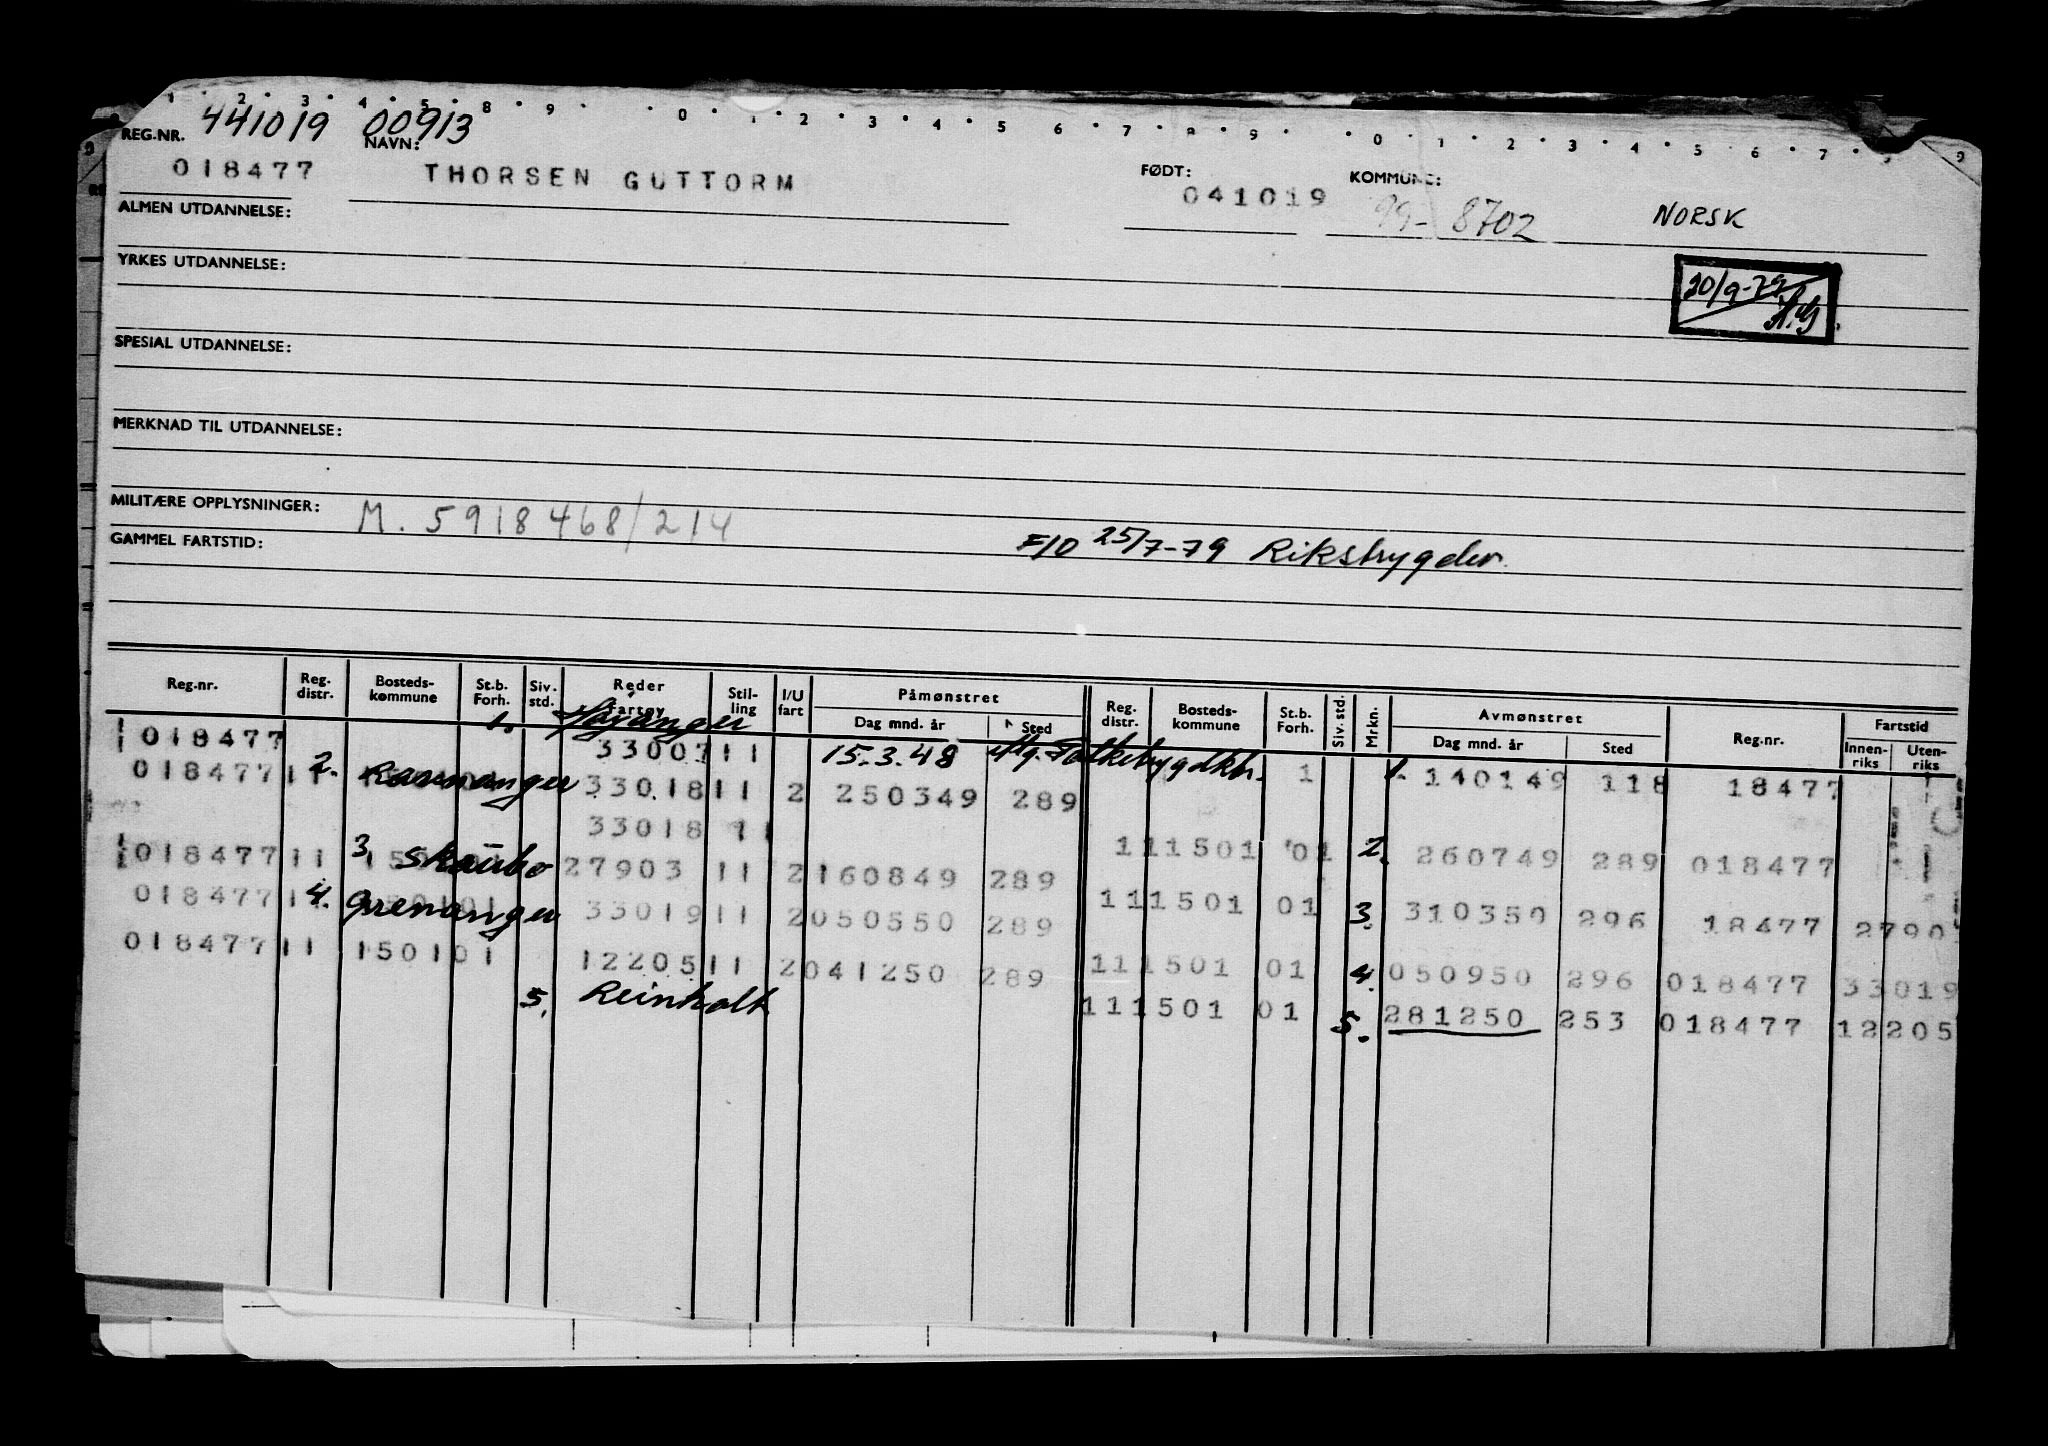 1 2 3 4 5 8 9 0 1 2 3 4 5 6 7 8 9 0 1 2 3 4 5 6 7 8 9
REG.NR. 441019 00913
NAVN:
018477 THORSEN GUTTORM
FØDT: 041019
KOMMUNE: 99- 8702 NORSK
ALMEN UTDANNELSE:
YRKES UTDANNELSE:
20/9-79
SPESIAL UTDANNELSE:
MERKNAD TIL UTDANNELSE:
MILITÆRE OPPLYSNINGER: M. 5918468/214
GAMMEL FARTSTID: F/O 25/7-79 Rikstrygden
Reg.nr. Reg. distr. Bosteds- kommune St.b. Forh. Siv. std. Reder Fartøy Stil- ling I/U fart Påmønstret Dag mnd. år Sted Reg. distr. Bosteds- kommune St.b. Forh. Siv. std. Mrkn. Avmønstret Dag mnd. år Sted Reg.nr. Fartstid Innen- riks Uten- riks
1. Høyanger
018477 33007 11 15.3.48 1 1. 140149 118 18477
018477 11 2. Ranmanger 33018 11 2 250349 289
33018 11 111501 01 2. 260749 289 018477
018477 11 3. Skaubo 27903 11 2 160849 289
018477 11 4. Grenanger 33019 11 2 050550 289 111501 01 3. 310350 296 18477 2790
018477 11 150101 12205 11 2 041250 289 111501 01 4. 050950 296 018477 33019
5. Reinholt 111501 01 5. 281250 253 018477 12205